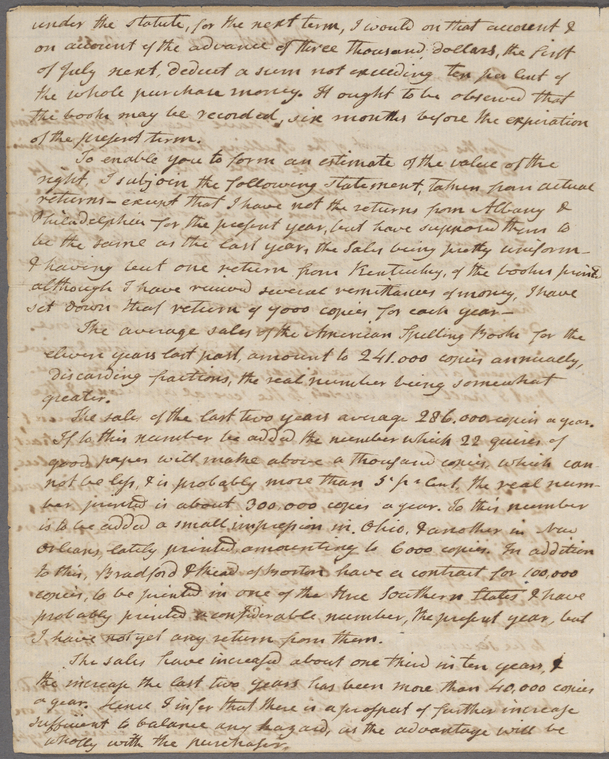 under the Statute, for the next term, I would on that account &
on account of the advance of three thousand dollars, the first
of July next, deduct a sum not exceeding ten per cent of
the whole purchase money. It ought to be observed that
the book may be recorded, six months before the expiration
of the present term.
To enable you to form an estimate of the value of the
right, I subjoin the following Statement, taken from actual
returns - except that I have not the returns from Albany &
Philadelphia for the present year, but have supposed them to
be the same as the last year, the sales being pretty uniform -
& having but one return from Kentucky, of the books print
although I have received several remittances of money, I have
set down that return of 9000 copies for each year -
The average sales of the American Spelling Book for the
eleven years last past, amount to 241.000 copies annually,
discarding fractions, the real number being somewhat
greater.
The sales of the last two years average 286.000 copies a year.
If to this number be added the number which 22 quires of
good paper will make above a thousand copies, which can
not be less, & is probably more than 5 pr Cent, the real num-
ber printed is about 300.000 copies a year. To this number
is to be added a small impression in Ohio, & another in New
Orleans, lately printed, amounting to 6000 copies. In addition
to this, Bradford & Read of Boston have a contract for 100,000
copies, to be printed in one of the Southern States & have
probably printed a considerable number, the present year, but
I have not yet any return from them.
The sales have increased about one third in ten years, &
the increase the last two years has been more than 40,000 copies
a year. Hence I infer that there is a prospect of further increase
sufficient to balance any hazard, as the advantage will be
wholly with the purchaser.